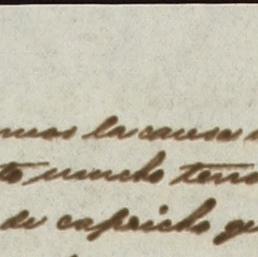 mos la causa
to mucho tem
de capricho qu